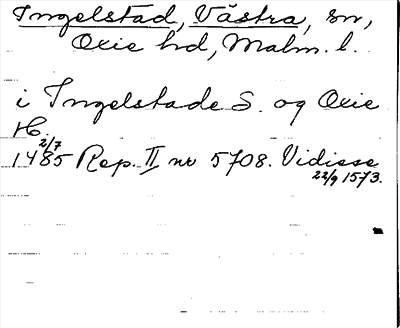 Ingelstad, Västra, sn,
Oxie hd, Malm. l.
i Ingelstade S. og Oxie
H.
2/7
1485 Rep. II nr 5708. Vidisse
22/9 1573.